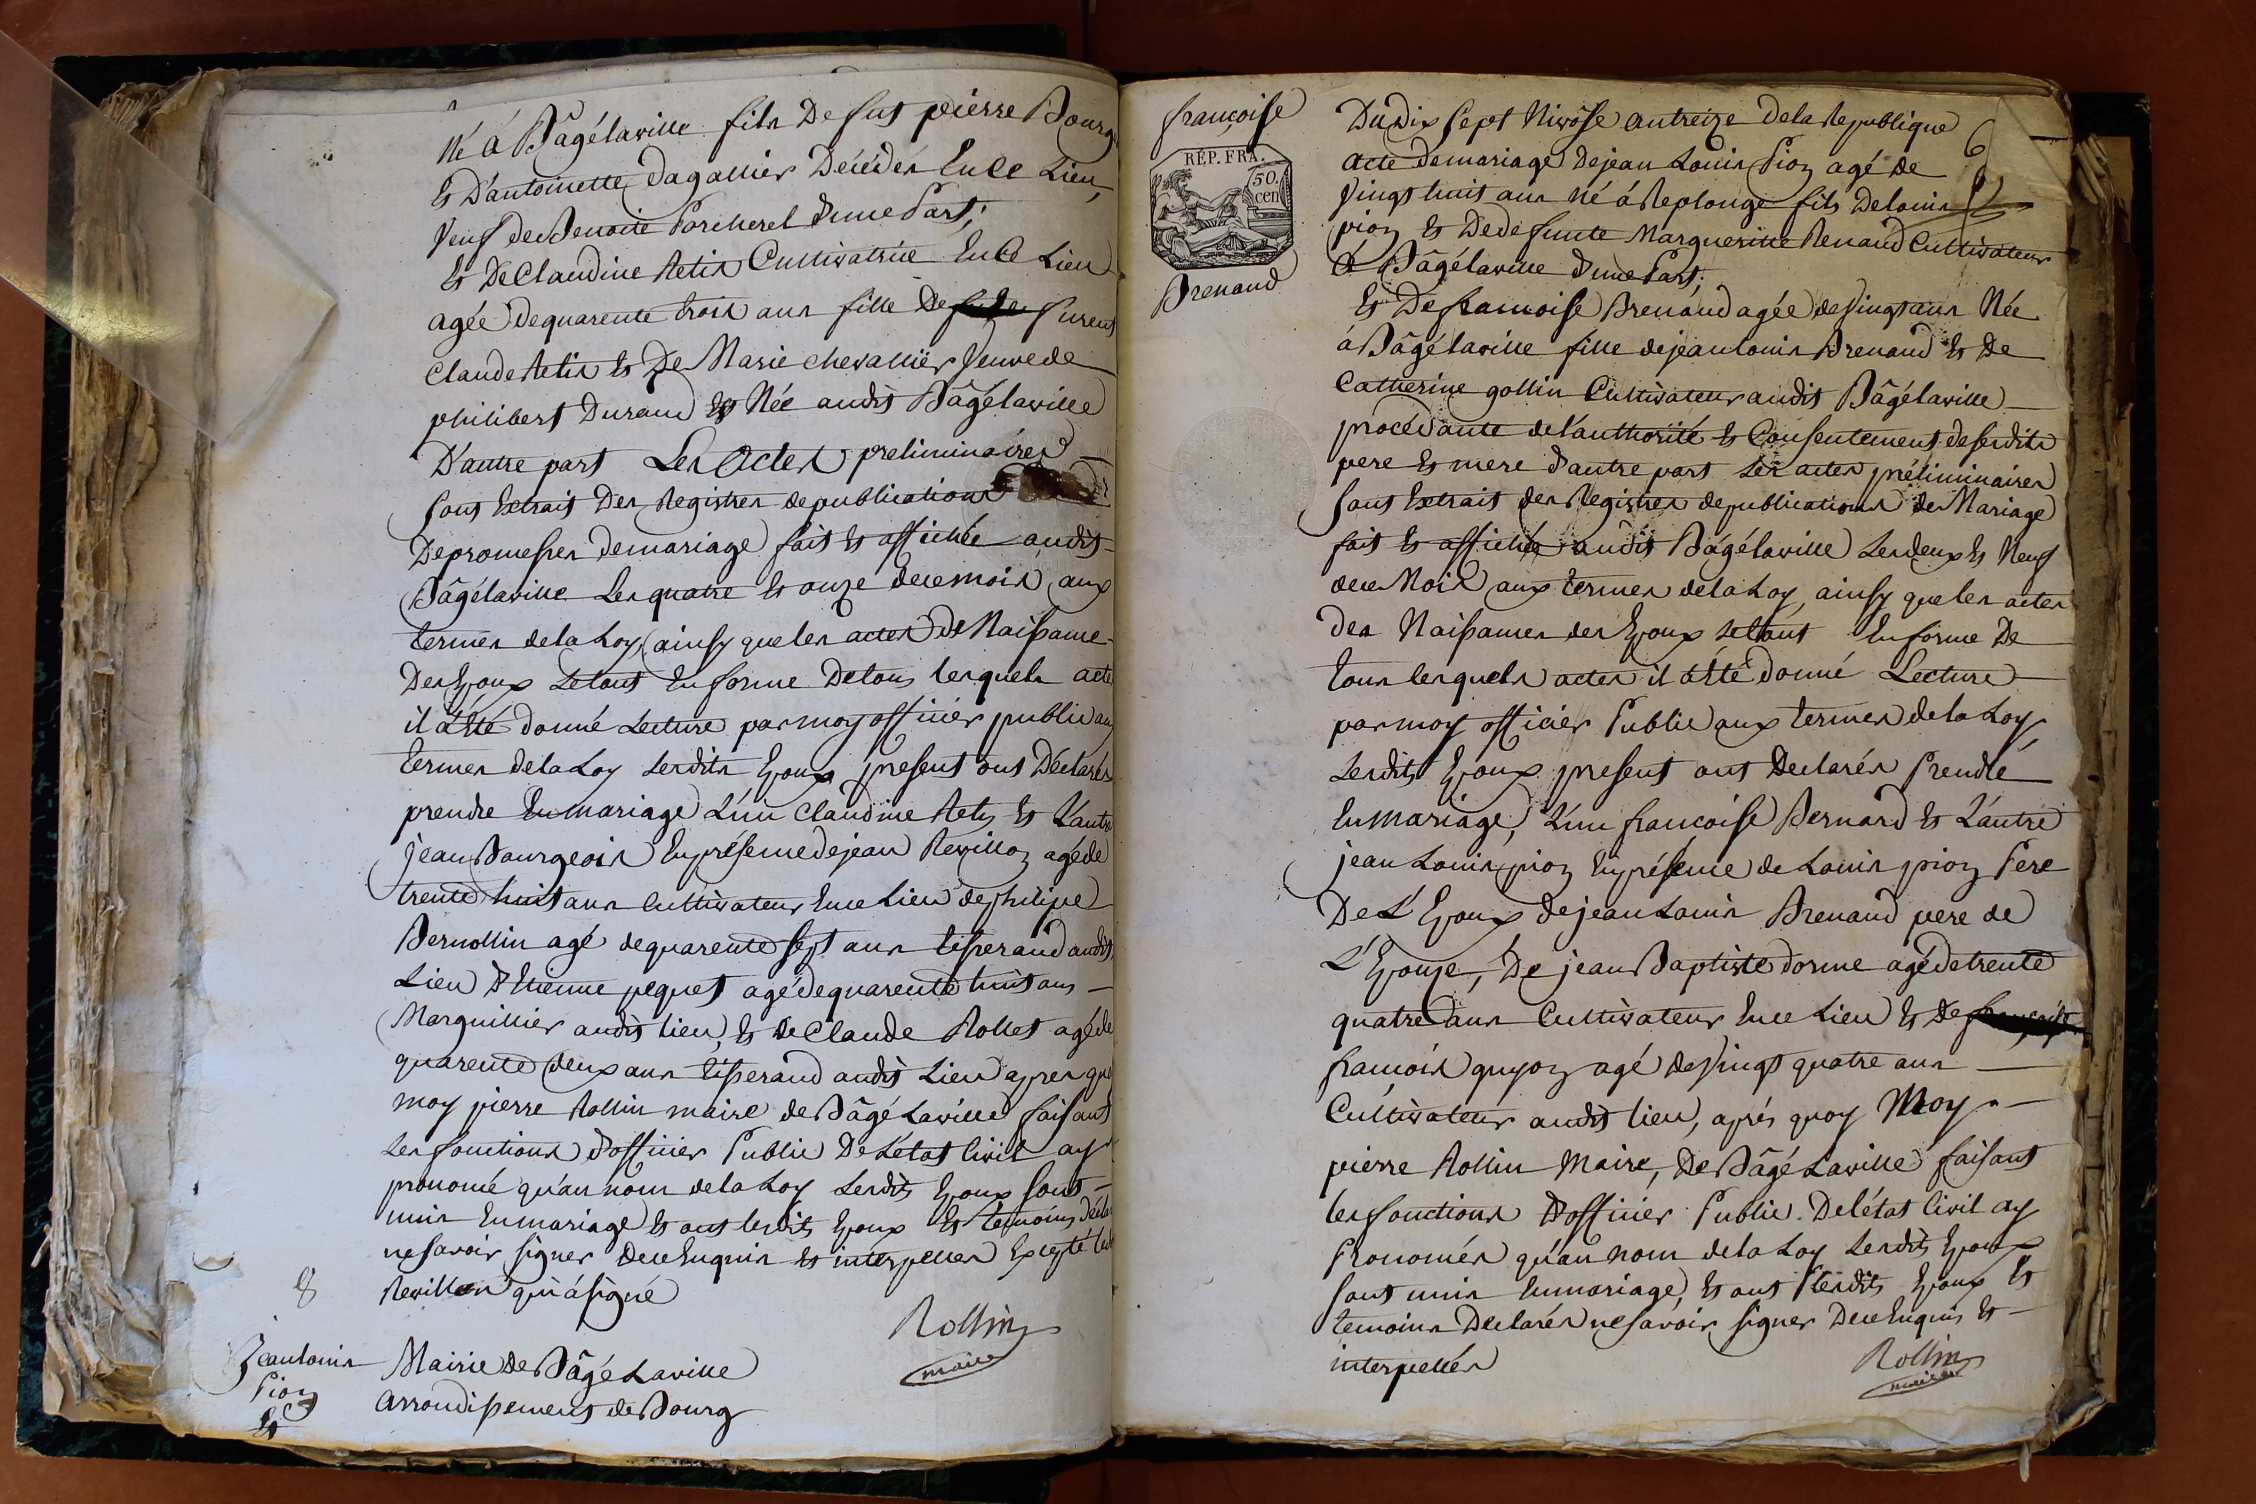 né á Bâgélaville fils De fut pierre Bourg
Et D'antoinette Dagallier Décédés En ce Lieu,
veuf de Benoite Porcherel D'une Part;
Et De Claudine Aetis Cultivatrice En ce Lieu
agée de quarente trois ans fille De furent
Claude Aetis Et De Marie chevallier veuve de
philibert Durand Et Née audit Bâgélaville
D'autre part Les Actes preliminaires
sont Extrait Des Registres de publications
De promesses de mariage fait Et affichée audit
Bâgélaville Les quatre Et onze de ce mois aux
termes de la Loy, ainsy que les actes de Naissance
Des Epoux Le tout En forme De tous lesquels acte
il a été donné Lecture par moy officier public aux
termes de la Loy Lesdits Epoux present ont Déclarés
prendre En mariage L'un Claudine Aetis Et L'autre
jean Bourgeois En présence de jean Revillon agé de
trente huit ans Cultivateur En ce Lieu de philipe
Bernollin agé de quarente sept ans tisserand audit
Lieu D'Etienne pequet agé de quarente huit ans
Marguillier audit lieu, Et de Claude Rollet agé de
quarente deux ans tisserand audit Lieu apres que
moy pierre Rollin maire de Bâgé Laville faisant
Les fonctions d'officier Public De L'état Civil ay
pronomé qu'au nom de la Loy Lesdits Epoux sont
unis En mariage Et ont lesdits Epoux Et temoins Décla
ne savoir signer De ce Enquis Et interpelles Excepté led
Revillon qui á signé
Rollin
maire
Jean louis
Pion
Et
Mairie De Bâgé Laville
arrondissement de Bourg
françoise
RÉP. FRA.
50.
cen
Brenaud
Du Dix sept Nivôse an treize de la Republique
acte de mariage De jean Louis Pion agé De
vingt huit ans né á Replonge fils De louis
pion Et De defunte Marguerite Renaud Cultivateur
á Bâgélaville D'une Part;
Et De francoise Brenaud agée de vingt ans Née
á Bâgélaville fille de jean louis Brenaud Et De
Catherine gollin Cultivateur audit Bâgélaville
procédante de l'authorité Et Consentement de sesdits
pere Et mere D'autre part Les actes préliminaires
sont Extrait des Registres de publications de Mariage
fait Et affichée audit Bâgélaville Les deux Et Neuf
de ce Mois aux termes de la Loy, ainsy que les actes
des Naissances des Epoux Le tout En forme De
tous lesquels actes il a été donné Lecture
par moy officier Public aux termes de la Loy
Lesdits Epoux present ont Declarés Prendre
En mariage, L'un francoise Bernard Et L'autre
jean Louis pion En présence de Louis pion Pere
De L'Epoux de jean Louis Brenaud pere de
L'Epouze, De jean Baptiste dorme agé de trente
quatre ans Cultivateur En ce Lieu Et De
francois guyon agé de vingt quatre ans
Cultivateur audit lieu, aprés quoy Moy
pierre Rollin Maire, De Bâgé Laville faisant
les fonctions D'officier Public. De l'état Civil ay
Pronomés qu'au nom de la Loy Lesdits Epoux
sont unis En mariage, Et ont Lesdits Epoux Et
temoins Declarés ne savoir signer De ce Enquis Et
interpellés
Rollin
maire